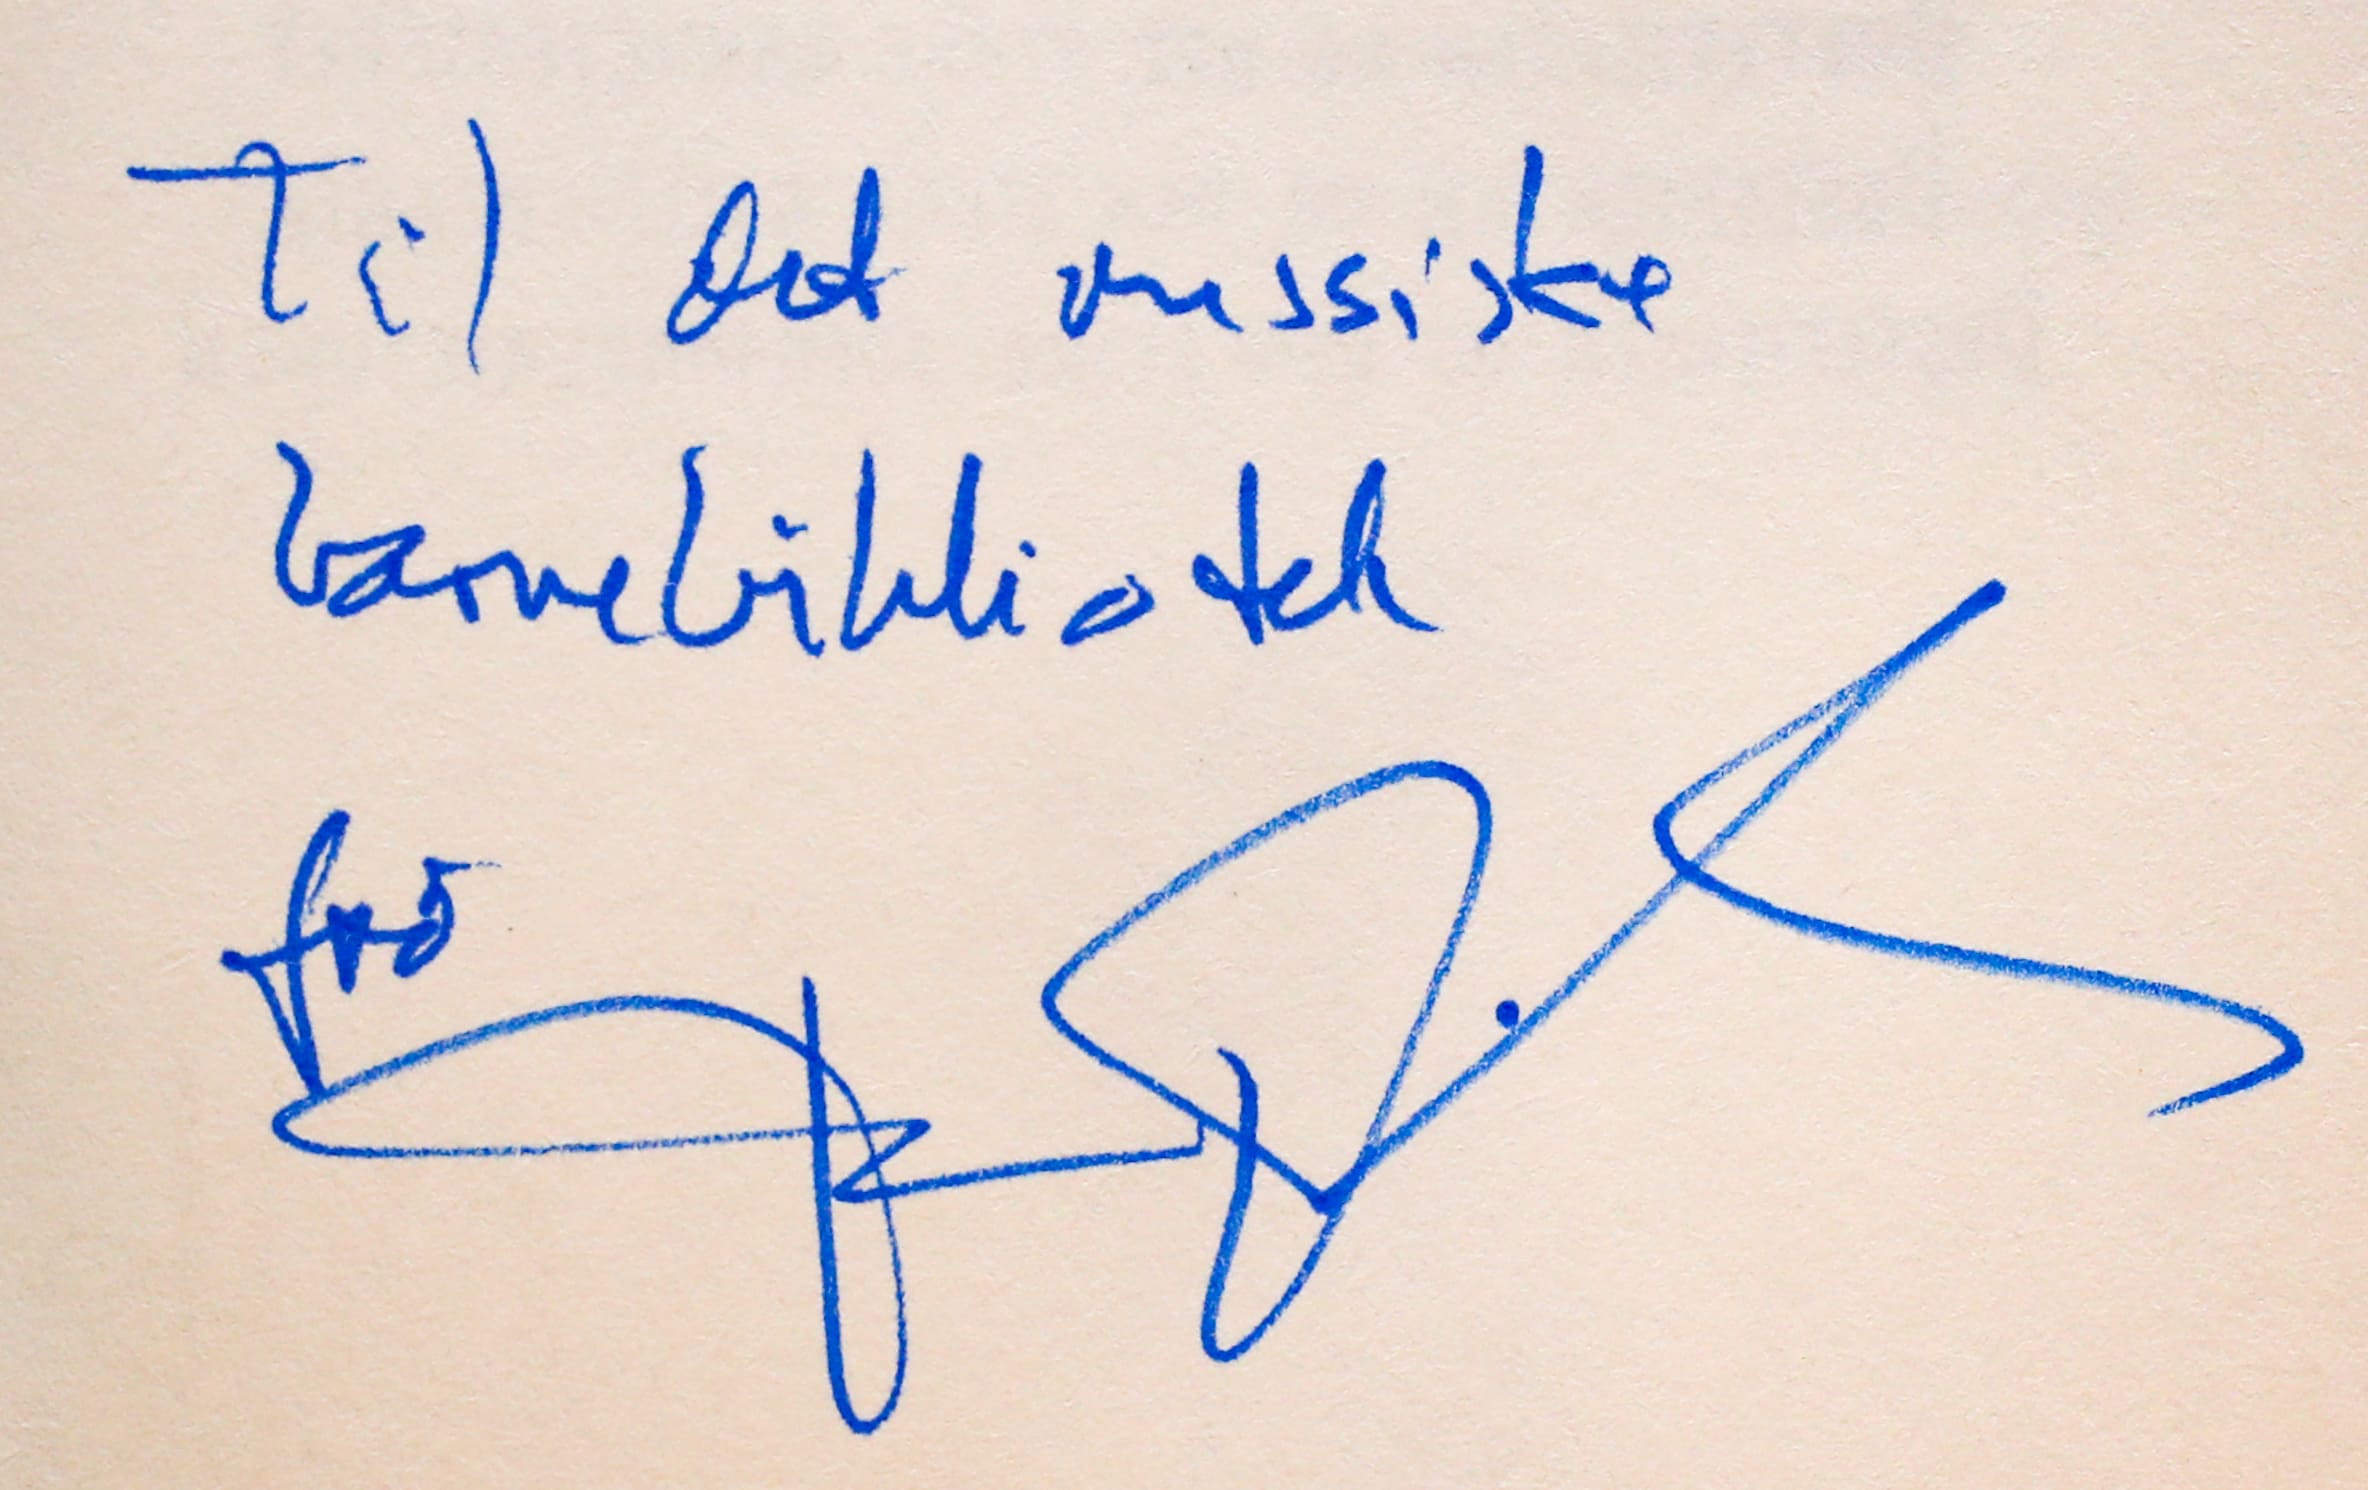 Til det russiske
barnebibliotek
frå